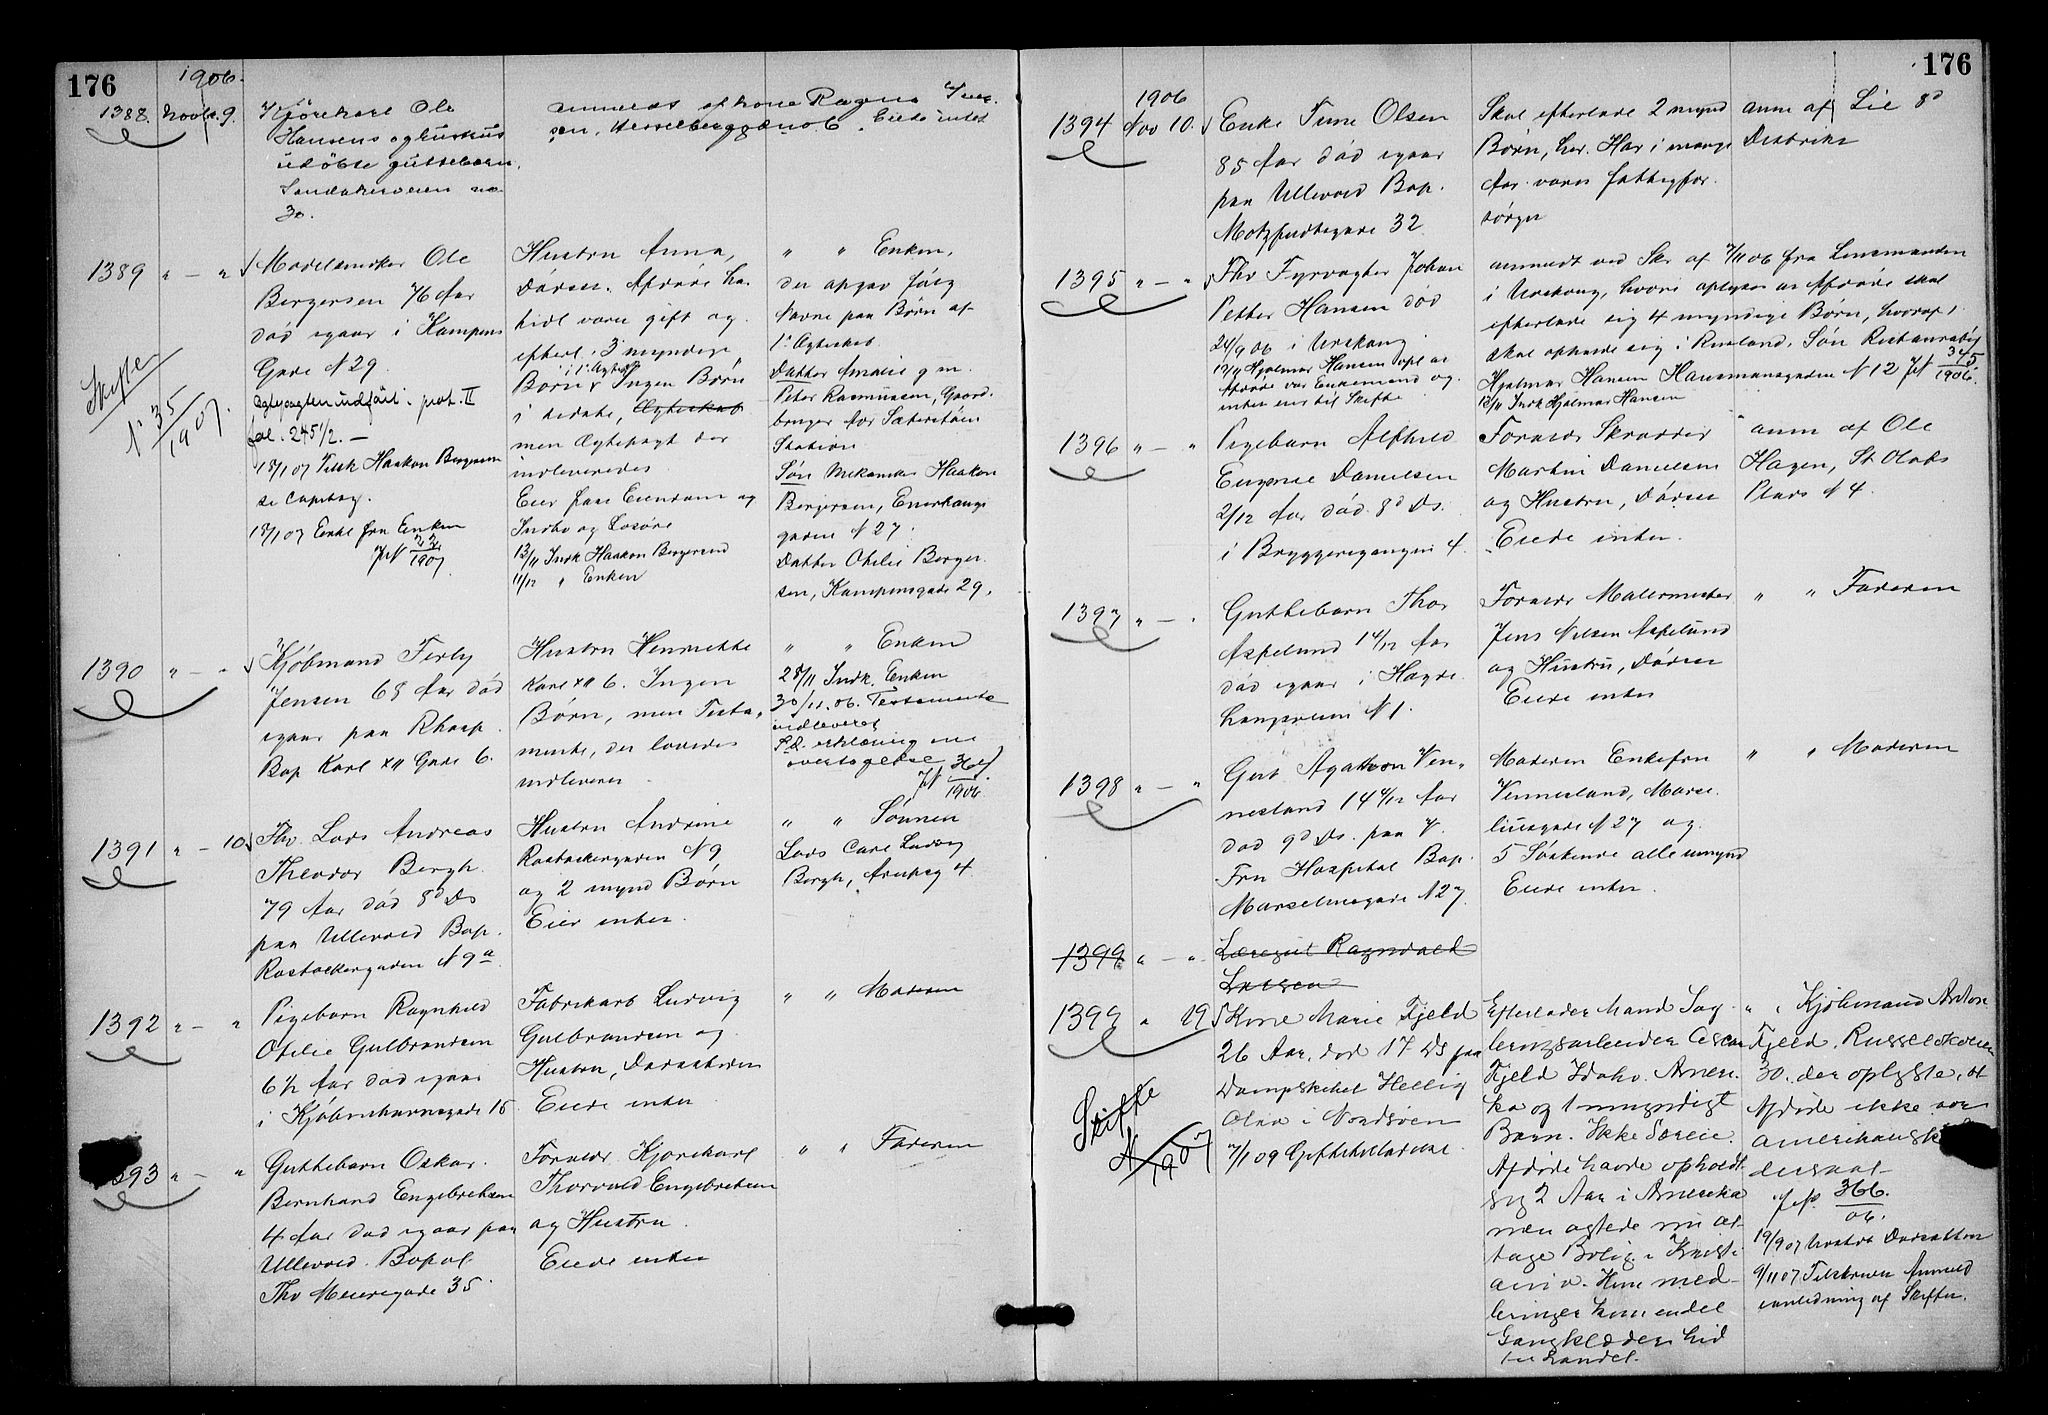 176
1906.
1388. Novbr. 9.
Kjörekarl Ole
Hansens og hustrus
udöbte guttebarn,
Sandakerveien no
30.
anmeldt af kone Ragna Iver-
sen, Hesselbergsgd no 6. Eiede intet
1389 " — "
Modelsnedker Ole
Bergersen 76 Aar
död igaar i Kampens
Gade N 29
Skifte
N 35/1907.
Ægtepagten udfört i prot. II
fol. 245 1/2. —
18/1 07 Tilsk Haakon Bergersen
18/1 07 Erkl fra Enken
JN 22/1907.
Hustru Anna,
Dödsen. Afdöde ha.
hidl været gift og
efterl. 3 myndige
i 1' Ægtesk
Börn. Ingen Börn
i sidste, Ægteskab
men Ægtepagt der
indleveredes
Eier fast Eiendom og
Indbo og Lösöre
13/11 Indk Haakon Bergersen
11/12 " Enken
" " Enken,
der opgav fölg
Navne paa Börn af
1' Ægteskab
Datter Amalie g m.
Peter Rasmussen, Gaard-
bruger Aas Sæterstöen
Station
Sön Mekaniker Haakon
Bergersen, Enerhaugs
gaden N 27.
Datter Othilie Berger
sen, Kampensgade 29.
1390 " — "
Kjöbmand Terly
Jensen 68 Aar död
igaar paa Rhosp.
Bop Karl XII Gade 6.
Hustru Henriette
Karl XII 6. Ingen
Börn, men Testa-
mente, der lovedes
indleveret
" " Enken
28/11 Indk. Enken
30/11. 06. Testamente
indleveret
S.D. erklæring om
overtagelse
JN 364/1906
1391 " — 10
Fhv. Lods Andreas
Theodor Bergh
79 Aar död 8d Ds
paa Ullevold Bop.
Rostockergaden N 9a
Hustru Andrine
Rostockergaden N 9
og 2 mynd Börn
Eier intet.
" " Sönnen
Lods Carl Ludvig
Bergh, Arupsg 4
1392 " — "
Pigebarn Ragnhild
Otilie Gulbrandsen
6 1/2 Aar död igaar
i Kjöbenhavnsgade 15
Fabrikarb Ludvig
Gulbrandsen og
Hustru, Dödsstedet
Eiede intet
" " Moderen
1393 " — "
Guttebarn Oskar
Bernhard Engebretsen
4 Aar död igaar paa
Ullevold. Bopæl
Thv Meieresgade 35
Forældr Kjörekarl
Thorvald Engebretsen
og Hustru
Eiede intet
" " Faderen
176
1906
1394 Nov 10.
Enke Tine Olsen
85 Aar död igaar
paa Ullevold Bop.
Motzfeldtsgade 32
Skal efterlade 2 mynd
Börn, her. Har i mange
Aar været fattigfor-
sörget
anm af Lie 8d
Distrikt
1395 " — "
Fhv Fyrvogter Johan
Petter Hansen död
24/9 06 i Urskoug
17/11 Hjalmar Hansen opl at
Afdöde var Enkemand og
intet eied til Skifte
anmeldt ved Skr af 7/11 06 fra Lensmanden
i Urskoug, hvori oplyses at Afdöde skal
efterlade sig 4 myndige Börn, hvoraf 1
skal opholde sig i Rusland. Sön Restauratör
Hjalmar Hansen Hausmannsgaden N 12 JN 345/1906.
13/11 Indk Hjalmar Hansen
1396 " — "
Pigebarn Alfhild
Eugenie Danielsen
2/12 Aar död 8d Ds.
i Bryggerigangen 4.
Forældr Skrædder
Martin Danielsen
og Hustru, Dödsen
Eiede intet.
anm af Ole
Hagen, St Olafs
Plads N 4.
1397 " — "
Guttebarn Thor
Aspelund 1 4/12 Aar
död igaar i Hagde-
haugsveien N 1.
Forældr Malermester
Jens Nilsen Aspelund
og Hustru, Dödsen
Eiede intet
" " Faderen
1398 " — "
Gut Agathon Ven-
nesland 14 4/12 Aar
död 9d Ds. paa V.
Fru Hospital Bop.
Marseliusgade N 27.
Moderen Enkefru
Vennesland, Marse-
liusgade N 27 og
5 Söskende alle umynd
Eiede intet.
" " Moderen
1399 " — "
Læregut Ragnvald
Larsen
1399 " 19
Kone Marie Fjeld
26 Aar, död 17 Ds paa
Dampskibet Hellig
Olav i Nordsöen
Skifte
N /1907
7/1 09
Efterlader Mand Sag-
brugsarbeider Oscar
Fjeld Idaho. Ameri-
ka og 1 umyndigt
Barn. Ikke Særeie.
Afdöde havde opholdt
sig 2 Aar i Amerika
men agtede nu at
tage Bolig i Kristi-
ania. Hun med-
bringer kun endel
Gangklæder hid
til Landet.
" " Kjöbmand Anton
Fjeld, Russelökveien
30. der oplyste, at
Afdöde ikke var
amerikansk
dersaat
Jfr. 366/06.
19/9 07
9/11 07 Tilskreven Anmeld
i anledning af Skiftet.